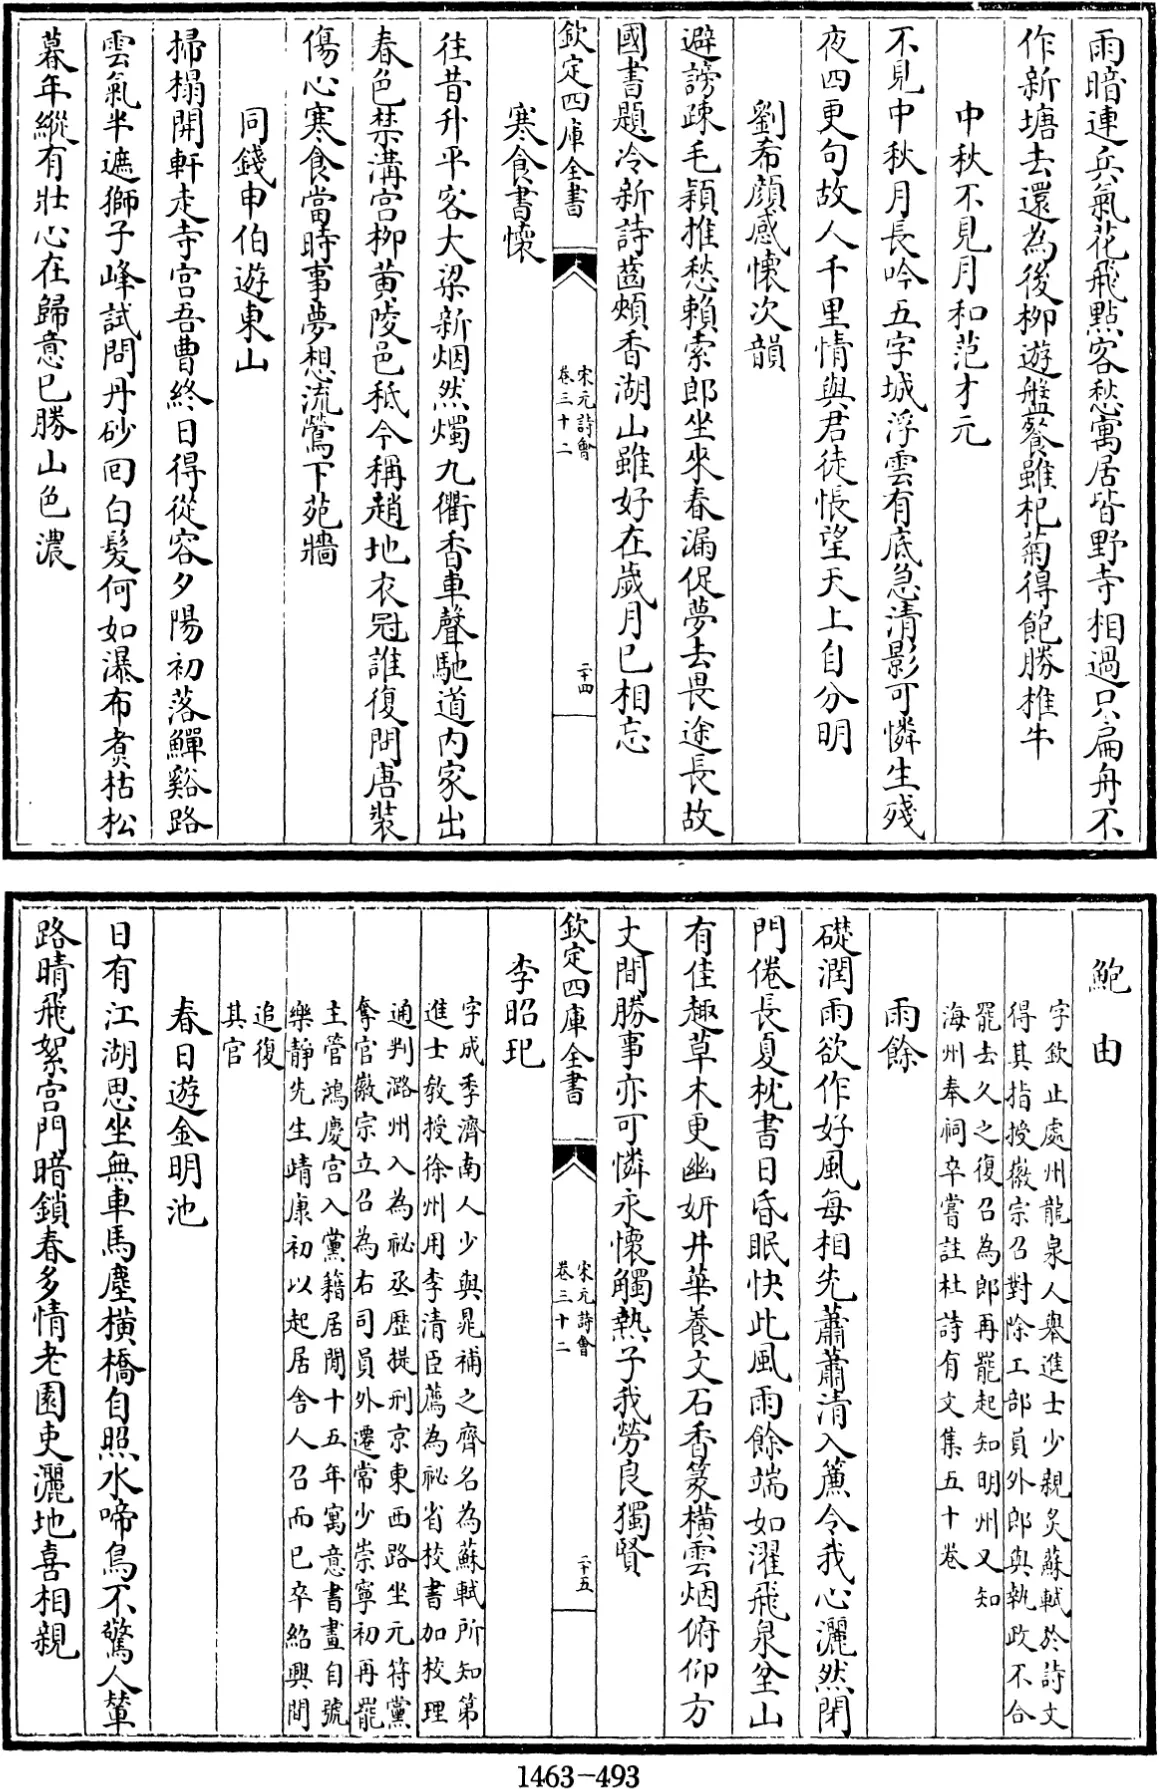 雨暗連兵氣花飛點客愁寓居皆野寺相過只扁舟不
作新塘去還為後栁遊盤餐雖杞菊得飽勝推牛
中秋不見月和范才元
不見中秋月長吟五字城浮雲有底急清影可憐生殘
夜四更句故人千里情與君徒悵望天上自分明
劉希顔感懷次韻
避謗疎毛穎推愁賴索郎坐來春漏促夢去畏途長故
國書題冷新詩齒頰香湖山雖好在歲月已相忘
欽定四庫全書
宋元詩會
卷三十二
二十四
寒食書懷
往昔升平客大梁新烟然燭九衢香車聲馳道内家出
春色禁溝宫柳黄陵邑秪今稱趙地衣冠誰復問唐裝
傷心寒食當時事夢想流鶯下苑牆
同錢申伯遊東山
掃榻開軒走寺宫吾曹終日得從容夕陽初落鱓谿路
雲氣半遮獅子峰試問丹砂回白髪何如瀑布煮枯松
暮年縱有壯心在歸意已勝山色濃
鮑由
字欽止處州龍泉人舉進士少親炙蘇軾於詩文
得其指授徽宗召對除工部員外郎與執政不合
罷去久之復召為郎再罷起知明州又知
海州奉祠卒嘗註杜詩有文集五十卷
雨餘
礎潤雨欲作好風每相先蕭蕭清入簾令我心灑然閉
門倦長夏枕書日昏眠快此風雨餘端如濯飛泉坌山
有佳趣草木更幽妍井華養文石香篆橫雲烟俯仰方
丈間勝事亦可憐永懷觸熱子我勞良獨賢
欽定四庫全書
宋元詩會
卷三十二
二十五
李昭玘
字成季濟南人少與晁補之齊名為蘇軾所知第
進士敎授徐州用李清臣薦為祕省校書加校理
通判潞州入為祕丞歴提刑京東西路坐元符黨
奪官徽宗立召為右司員外遷常少崇寧初再罷
主管鴻慶宫入黨籍居閒十五年寓意書畫自號
樂靜先生靖康初以起居舍人召而已卒紹興間
追復
其官
春日遊金明池
日有江湖思坐無車馬塵橫橋自照水啼鳥不驚人輦
路晴飛絮宫門暗鎖春多情老園吏灑地喜相親
1463-493